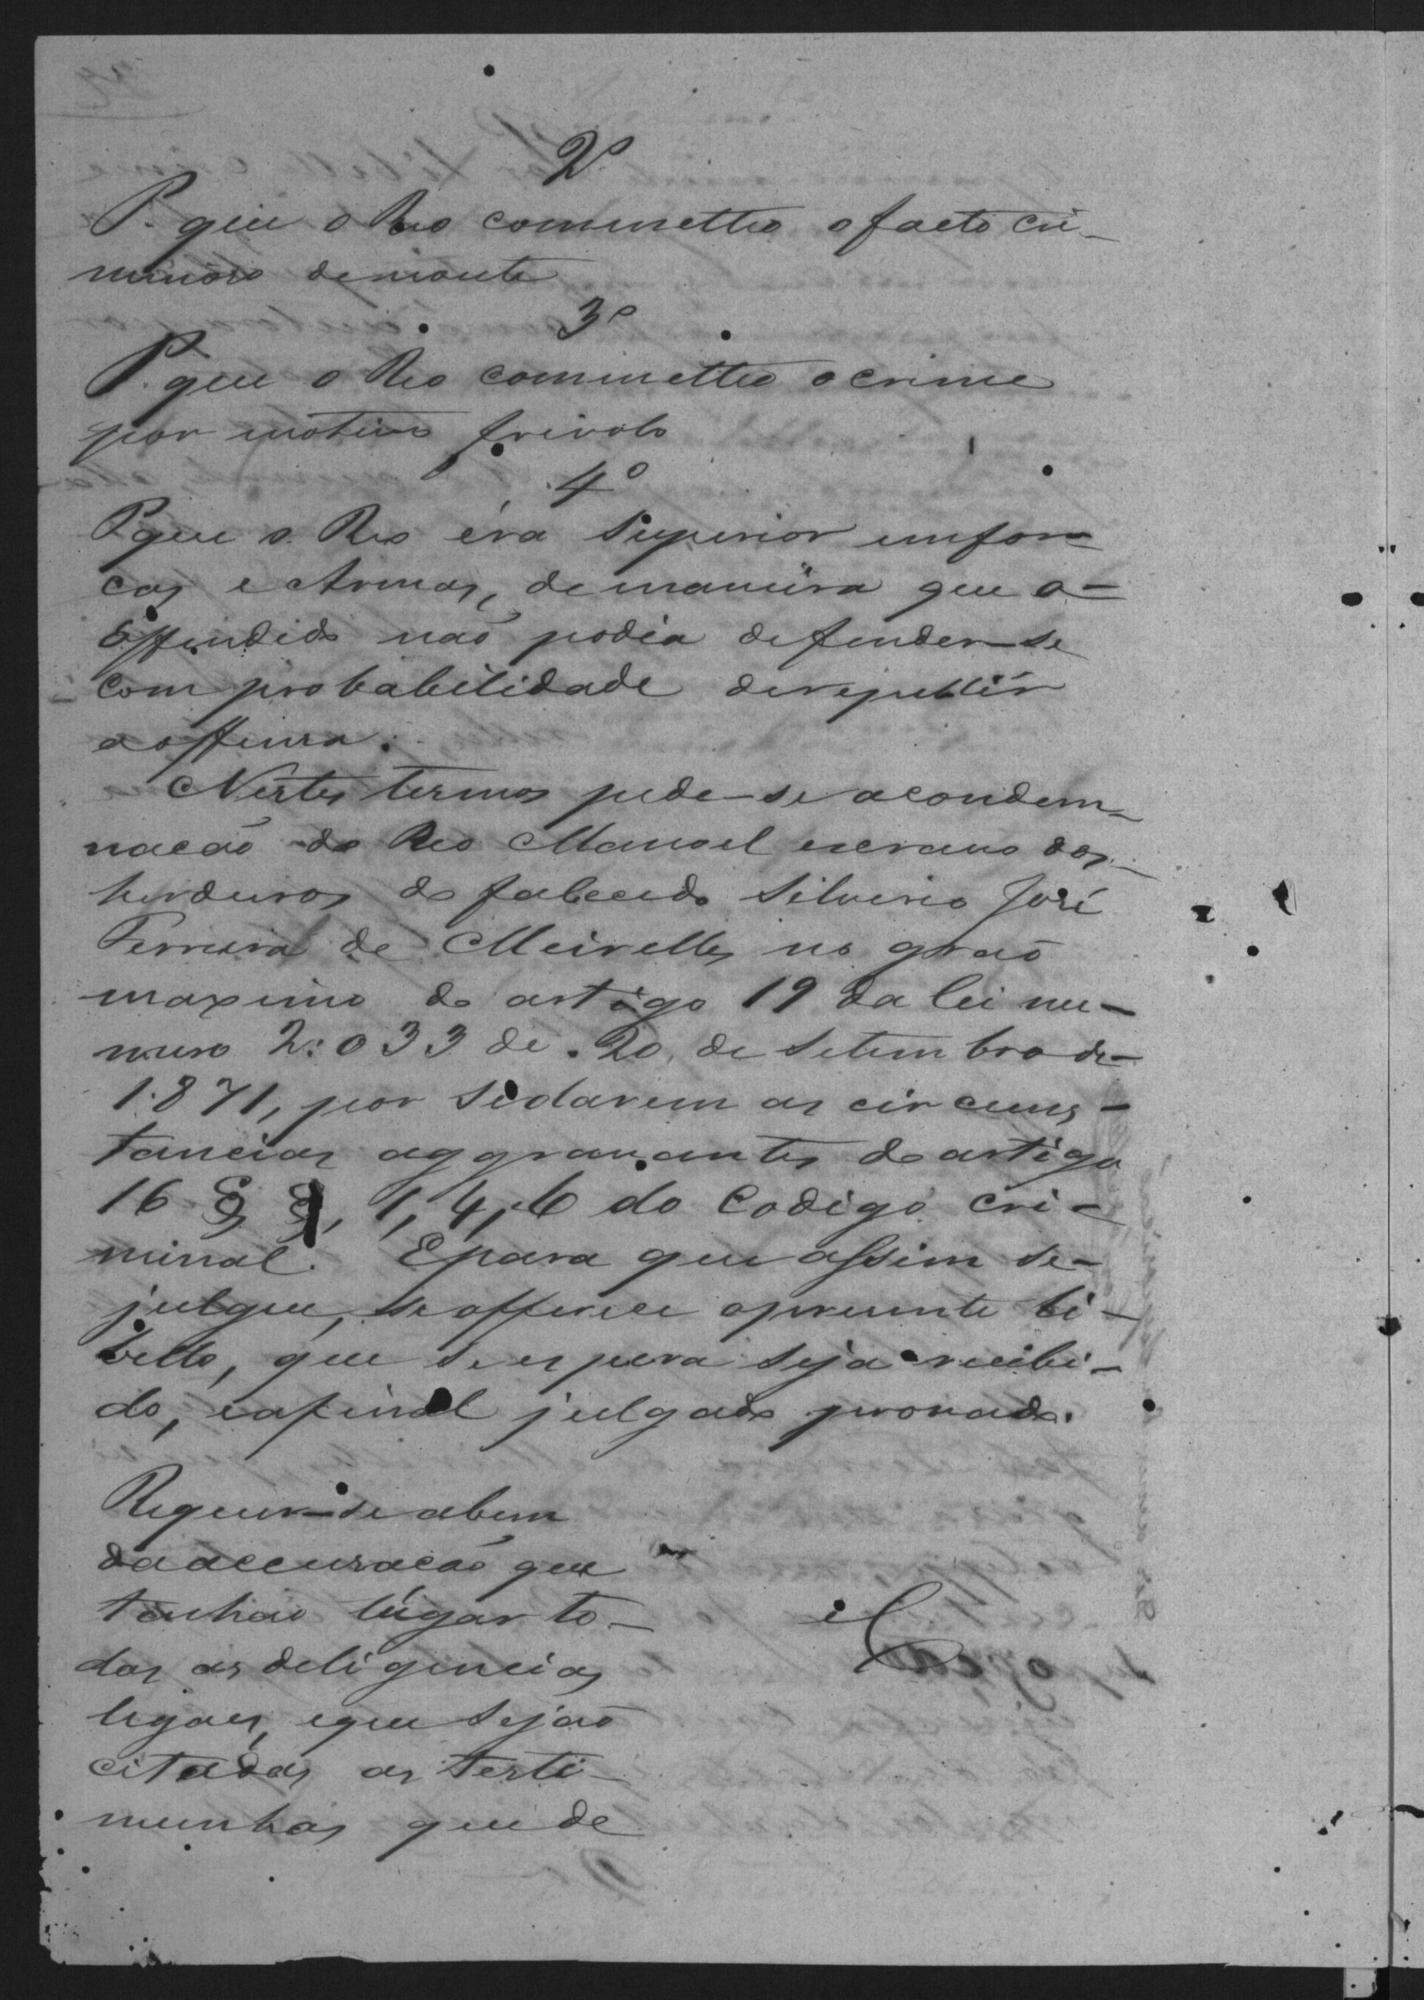 2º
P. que o Reo commetteo o facto cri-
minoso de noute
3º
P. que o Reo commetteo o crime
por motivo frivolo
4º
P que o Reo éra superior em for-
cas e Armas, de maneira que o-
offendido não podia defender-se
com probabilidade de repellir
a offensa.
Nestes termos pede-se a condem-
nacão do Reo Manoel escravo dos
herdeiros do falecido Silverio José
Ferreira de Meirelles no grao
maximo do artigo 19 da lei nu-
mero 2:033 de 20 de Setembro de-
1871, por se darem as circums-
tancias aggravantes do artigo
16 § §, 1, 4, 6 do Codigo cri-
minal. E para que assim se-
julgue, se offerece o presente li-
bello, que se espera seja recibi-
do, e afinal julgado provado.
Requer-se a bem
da accusacão que
tenhão lugar to-
das as deligencias
legaes, e que sejão
citadas as teste-
munhas que de